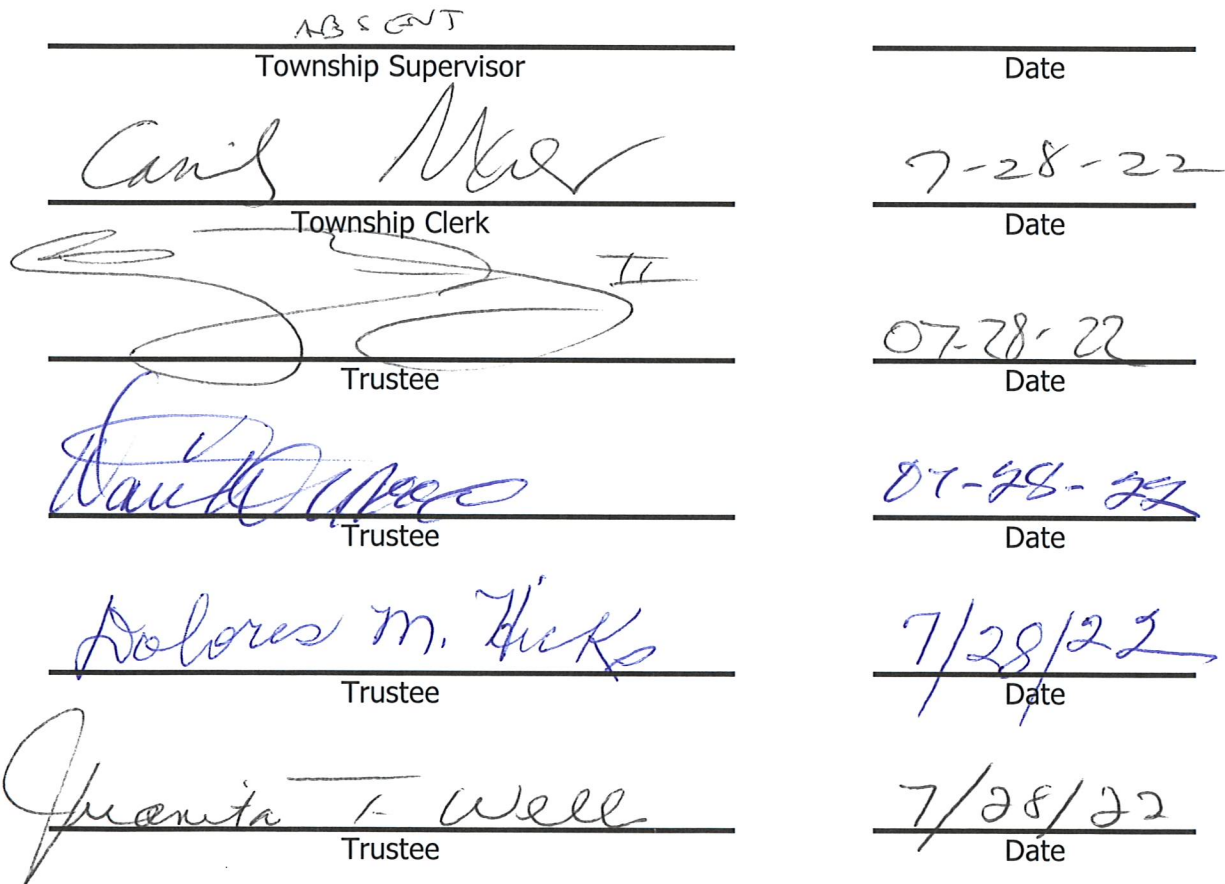 ABSENT
Township Supervisor Date
7-28-22
Township Clerk Date
II 07-28-22
Trustee Date
07-28-22
Trustee Date
Dolores M. Hicks 7/28/22
Trustee Date
Juanita T. Well 7/28/22
Trustee Date